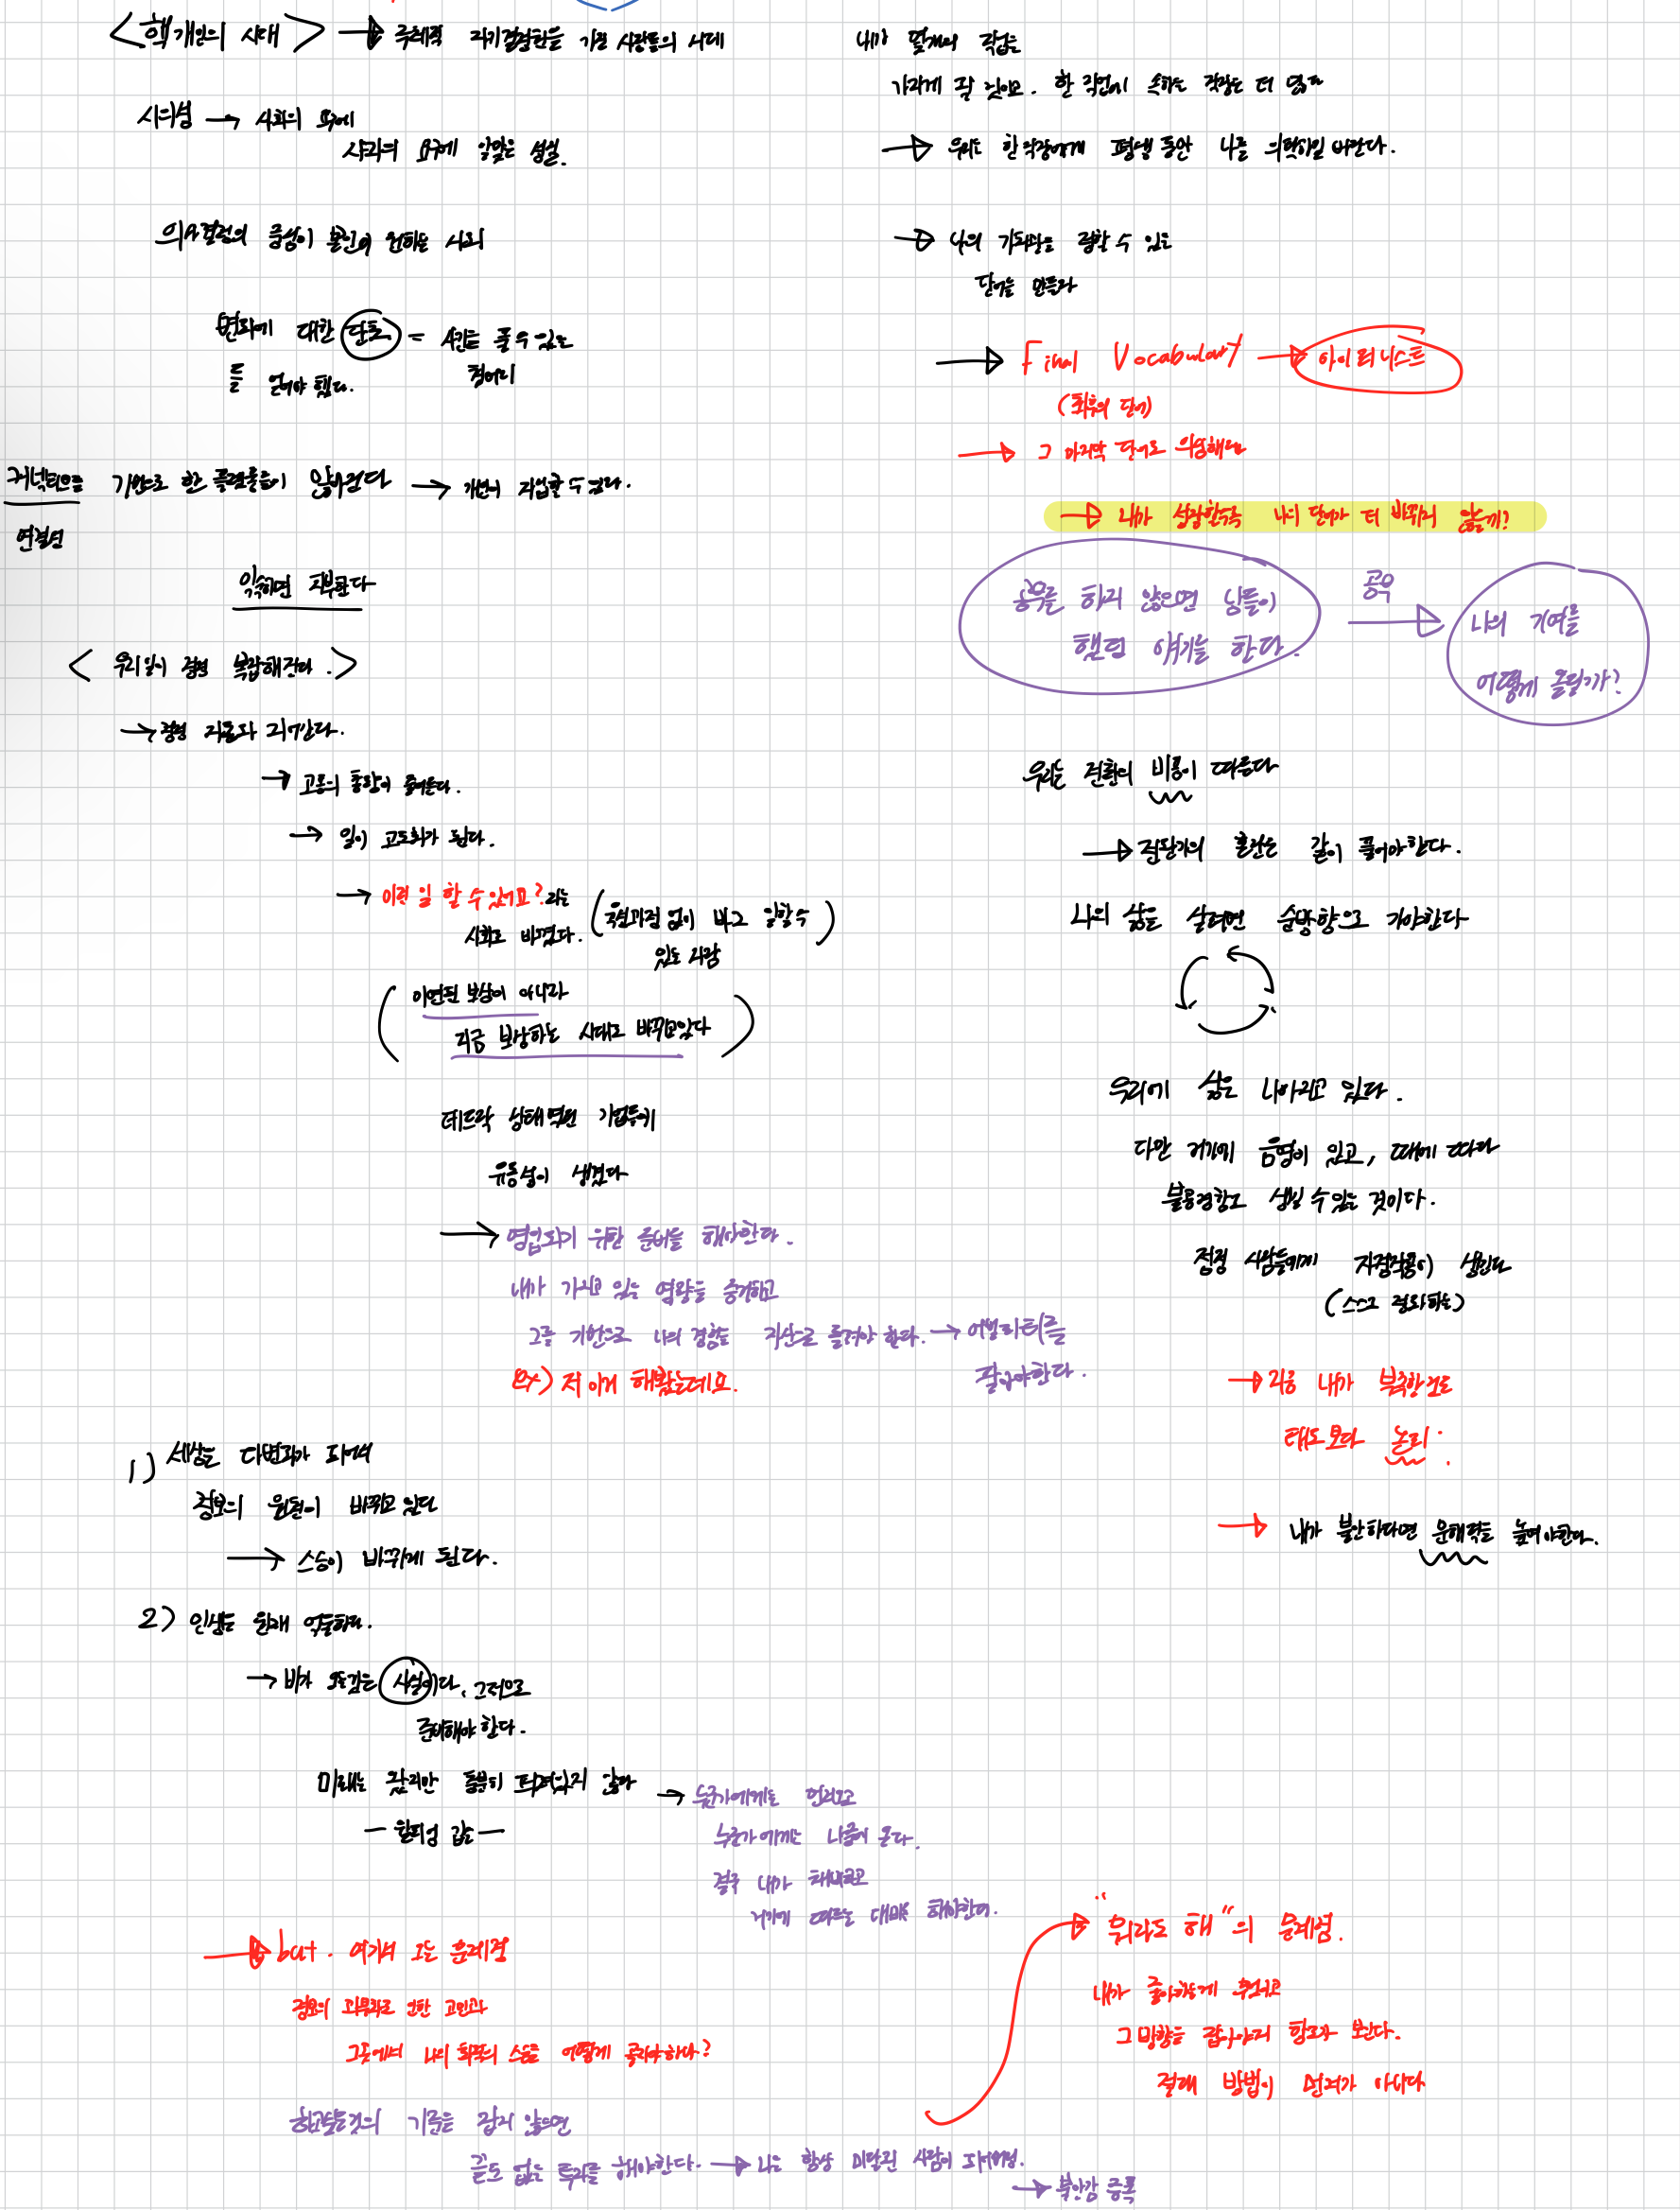 <핵개인의 시대> → 주체적 자기결정권을 가진 사람들의 시대
시의성 → 사회의 요구에
사회의 요구에 알맞은 성실.
의사결정의 중심이 본인이 원하는 사회
변화에 대한 단초 = 사건을 풀 수 있는
들 얻어야 했다. 첫머리
커넥티드를 기반으로 한 플랫폼들이 많아진다 → 개인이 자립할 수 있다.
연결성
익숙하면 지루한다
<우리 일이 점점 복잡해진다.>
→ 점점 자동화 되어간다.
→ 고통의 총량이 줄어든다.
→ 일이 고도화가 된다.
→ 이런 일 할 수 있어요? 라는
사회로 바꼈다. (훈련과정 없이 바로 일할 수
있는 사람)
(이연된 보상이 아니라
지금 보상하는 시대로 바뀌고있다)
데드락 상태였던 기업들에게
유동성이 생겼다
→ 영입되기 위한 준비를 해야한다.
내가 가지고 있는 역량을 증거하고
그를 기반으로 나의 경험을 자산으로 돌려야 한다. → 어빌리티를
팔아야한다.
ex) 저 이거 해봤는데요.
1) 세상은 다변화가 되어서
정보의 원천이 바뀌고 있다
→ 스승이 바뀌게 된다.
2) 인생은 원래 억울하다.
→ 비가 오는것은 사실이다. 그저으로
존재해야 한다.
미래는 왔지만 충분히 퍼져있지 않다
- 윌리엄 깁슨 -
→ 누군가에게는 먼저오고
누군가에게는 나중에 온다.
결국 내가 대비하고
거기에 따르는 대비 해야한다.
→ but. 여기서 오는 문제점
정보의 과부화로 인한 고민과
그중에서 나의 최고의 스승을 어떻게 골라야하나?
하고싶은것의 기준을 잡지 않으면
끝도 없는 투자를 해야한다. → 나는 항상 미달된 사람이 되어버림.
→ 불안감 증폭
내가 몇개의 직업을
가지게 될 것이고. 한 직업에 속하는 직장은 더 많다
→ 우리는 한 직장에게 평생 동안 나를 의탁하질 바란다.
→ 나의 가치관을 정할 수 있는
단어를 만들라
→ Final Vocabulary → 아이러니스트
(최후의 단어)
→ 그 마지막 단어로 의심해라
→ 내가 성장할수록 나의 단어가 더 바뀌지 않을까?
공유를 하지 않으면 남들이
했던 얘기를 한다.
공유 → 나의 기여를
어떻게 올릴까?
우리는 전환의 비용이 따른다
→ 전환기의 혼란은 같이 풀어야한다.
나의 삶을 살려면 순방향으로 가야한다
우리에 삶은 나아지고 있다.
다만 거기에 음영이 있고, 때에 따라
불용경향도 생길 수 있는 것이다.
점점 사람들에게 자정작용이 생긴다
(스스로 정화하는)
→ 지금 내가 부족한걸로
태도보다 논리.
→ 내가 불안하다면 문해력을 높여야한다.
→ "뭐라도 해"의 문제점.
내가 좋아하는게 무엇이고
그 방향을 잡아야지 한다고 본다.
절대 방법이 먼저가 아니다